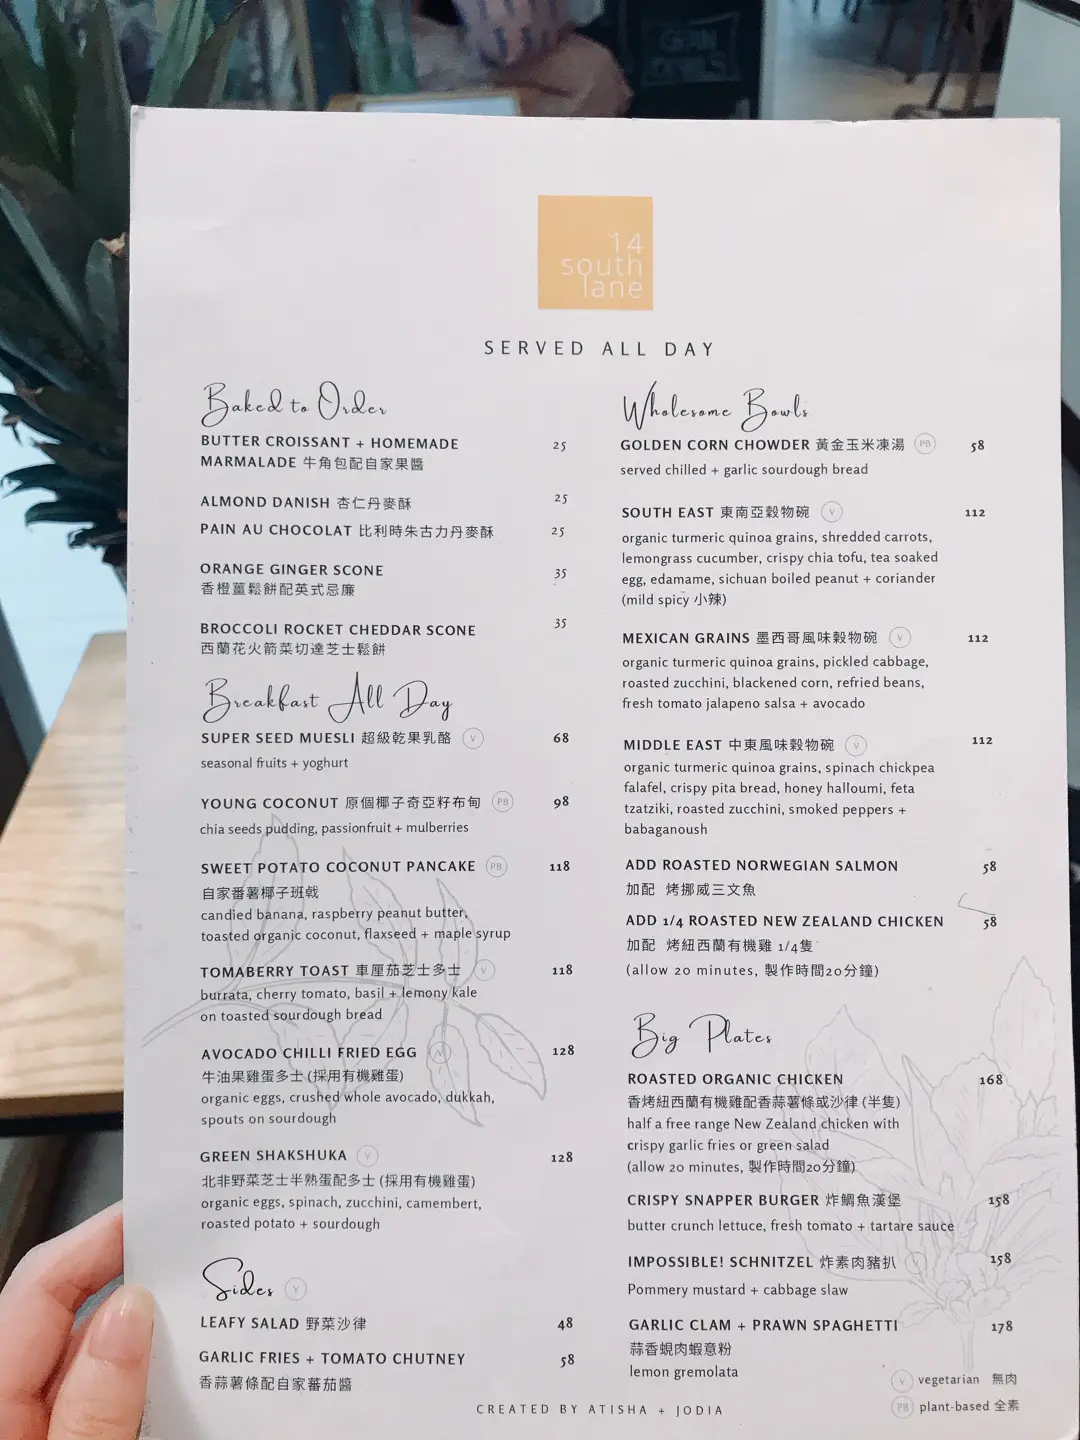 14
south
lane
SERVED ALL DAY
Baked to Order
BUTTER CROISSANT + HOMEMADE 25
MARMALADE 牛角包配自家果醬
ALMOND DANISH 杏仁丹麥酥 25
PAIN AU CHOCOLAT 比利時朱古力丹麥酥 25
ORANGE GINGER SCONE 35
香橙薑鬆餅配英式忌廉
BROCCOLI ROCKET CHEDDAR SCONE 35
西蘭花火箭菜切達芝士鬆餅
Breakfast All Day
SUPER SEED MUESLI 超級乾果乳酪 V 68
seasonal fruits + yoghurt
YOUNG COCONUT 原個椰子奇亞籽布甸 PB 98
chia seeds pudding, passionfruit + mulberries
SWEET POTATO COCONUT PANCAKE PB 118
自家番薯椰子班戟
candied banana, raspberry peanut butter,
toasted organic coconut, flaxseed + maple syrup
TOMABERRY TOAST 車厘茄芝士多士 V 118
burrata, cherry tomato, basil + lemony kale
on toasted sourdough bread
AVOCADO CHILLI FRIED EGG V 128
牛油果雞蛋多士 (採用有機雞蛋)
organic eggs, crushed whole avocado, dukkah,
spouts on sourdough
GREEN SHAKSHUKA V 128
北非野菜芝士半熟蛋配多士 (採用有機雞蛋)
organic eggs, spinach, zucchini, camembert,
roasted potato + sourdough
Sides V
LEAFY SALAD 野菜沙律 48
GARLIC FRIES + TOMATO CHUTNEY 58
香蒜薯條配自家蕃茄醬
Wholesome Bowls
GOLDEN CORN CHOWDER 黃金玉米凍湯 PB 58
served chilled + garlic sourdough bread
SOUTH EAST 東南亞穀物碗 V 112
organic turmeric quinoa grains, shredded carrots,
lemongrass cucumber, crispy chia tofu, tea soaked
egg, edamame, sichuan boiled peanut + coriander
(mild spicy 小辣)
MEXICAN GRAINS 墨西哥風味穀物碗 V 112
organic turmeric quinoa grains, pickled cabbage,
roasted zucchini, blackened corn, refried beans,
fresh tomato jalapeno salsa + avocado
MIDDLE EAST 中東風味穀物碗 V 112
organic turmeric quinoa grains, spinach chickpea
falafel, crispy pita bread, honey halloumi, feta
tzatziki, roasted zucchini, smoked peppers +
babaganoush
ADD ROASTED NORWEGIAN SALMON 58
加配 烤挪威三文魚
ADD 1/4 ROASTED NEW ZEALAND CHICKEN 58
加配 烤紐西蘭有機雞 1/4隻
(allow 20 minutes, 製作時間20分鐘)
Big Plates
ROASTED ORGANIC CHICKEN 168
香烤紐西蘭有機雞配香蒜薯條或沙律 (半隻)
half a free range New Zealand chicken with
crispy garlic fries or green salad
(allow 20 minutes, 製作時間20分鐘)
CRISPY SNAPPER BURGER 炸鯛魚漢堡 158
butter crunch lettuce, fresh tomato + tartare sauce
IMPOSSIBLE! SCHNITZEL 炸素肉豬扒 V 158
Pommery mustard + cabbage slaw
GARLIC CLAM + PRAWN SPAGHETTI 178
蒜香蜆肉蝦意粉
lemon gremolata
V vegetarian 無肉
PB plant-based 全素
CREATED BY ATISHA + JODIA